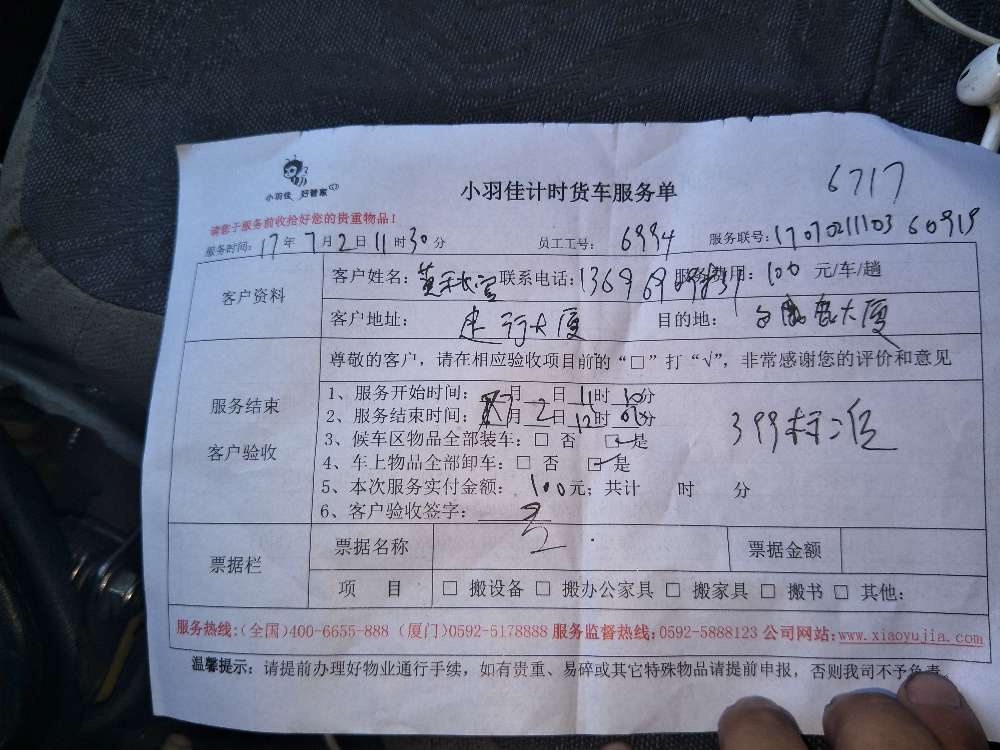 小羽佳 好管家
小羽佳计时货车服务单
6717
请您于服务前收拾好您的贵重物品！
服务时间：17年7月2日11时30分 员工工号： 6994 服务联号：17070211103 60919
客户资料
客户姓名： 联系电话： 服务费用：100 元/车/趟
客户地址： 建行大厦 目的地： 大厦
尊敬的客户，请在相应验收项目前的“□”打“√”，非常感谢您的评价和意见
服务结束
客户验收
1、服务开始时间： 月 日 11时10分
2、服务结束时间： 月 2 日 12时 分
3、候车区物品全部装车：□ 否 ☑ 是
4、车上物品全部卸车：□ 否 ☑ 是
5、本次服务实付金额： 100元；共计 时 分
6、客户验收签字：
399标准
票据栏
票据名称 票据金额
项 目 □ 搬设备 □ 搬办公家具 □ 搬家具 □ 搬书 □ 其他：
服务热线:(全国)400-6655-888 (厦门)0592-5178888 服务监督热线:0592-5888123 公司网站:www.xiaoyujia.com
温馨提示：请提前办理好物业通行手续，如有贵重、易碎或其它特殊物品请提前申报，否则我司不予负责。